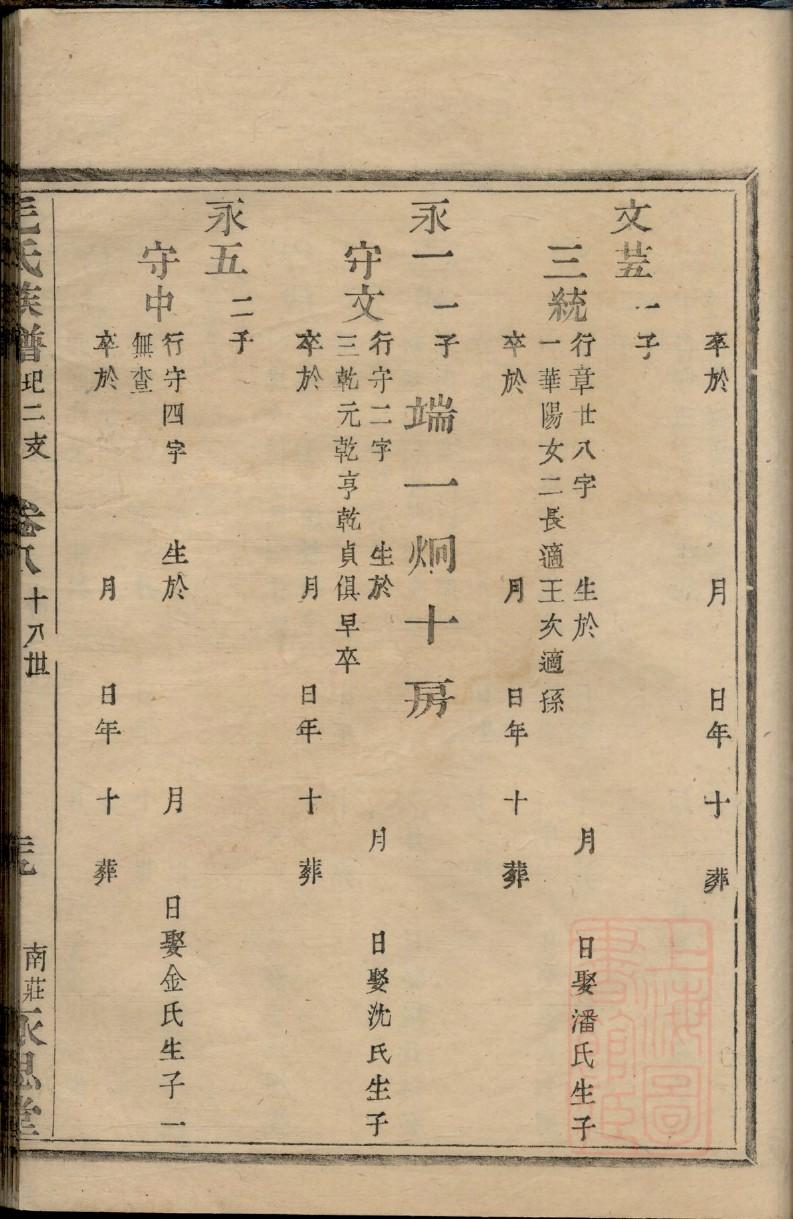 卒於 月 日年 十 葬
文芸 一子
三統 行章廿八字 生於 月 日娶潘氏生子
一華陽女二長適王次適孫
卒於 月 日年 十 葬
永一 一子 端一炯十房
守文 行守二字 生於 月 日娶沈氏生子
三乾元乾亨乾貞俱早卒
卒於 月 日年 十 葬
永五 二子
守中 行守四字 生於 月 日娶金氏生子一
無查
卒於 月 日年 十 葬
毛氏族譜 圯二支 卷八 十八世 南莊永思堂
上海圖書館藏